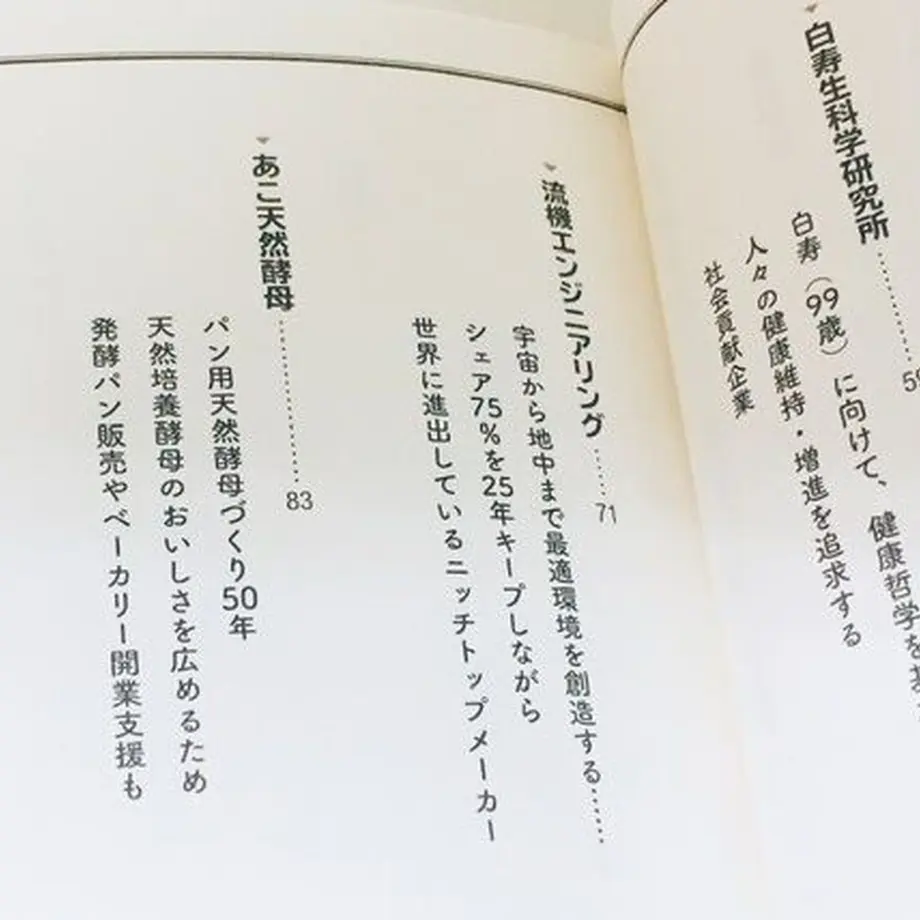 白寿生科学研究所………59
白寿（99歳）に向けて、健康哲学を
人々の健康維持・増進を追求する
社会貢献企業
流機エンジニアリング……71
宇宙から地中まで最適環境を創造する……
シェア75％を25年キープしながら
世界に進出しているニッチトップメーカー
あこ天然酵母………83
パン用天然酵母づくり50年
天然培養酵母のおいしさを広めるため
発酵パン販売やベーカリー開業支援も